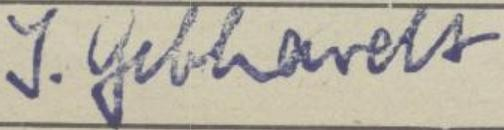 J. Gebhardt